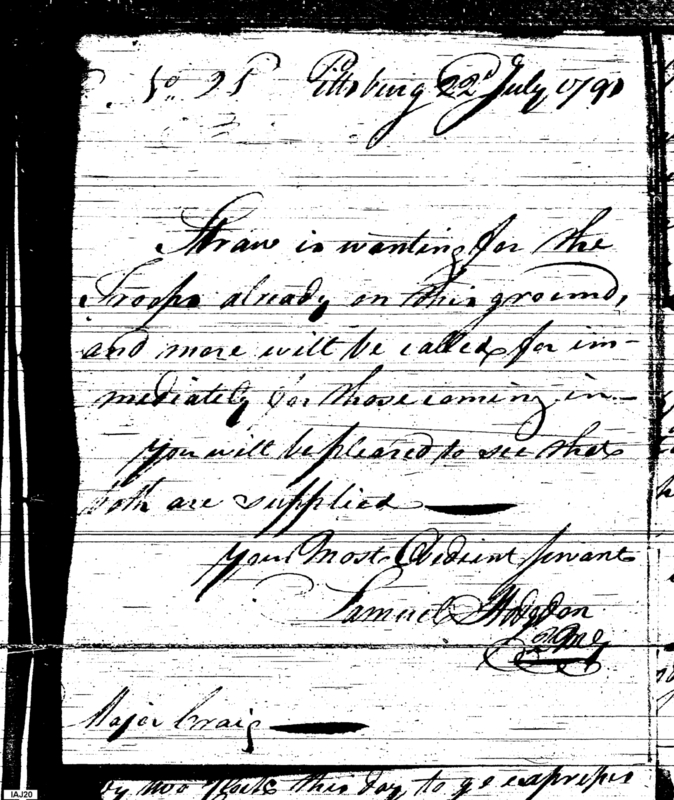 Pittsburg 22d July 1791
Straw is wanting for the
Troops already on this ground,
and more will be called for im-
mediately for those coming in -
you will be pleased to see that
both are supplied
your Most Obedient servant
Samuel Hodgdon
QMG
Major Craig
this day to go express
IAJ20